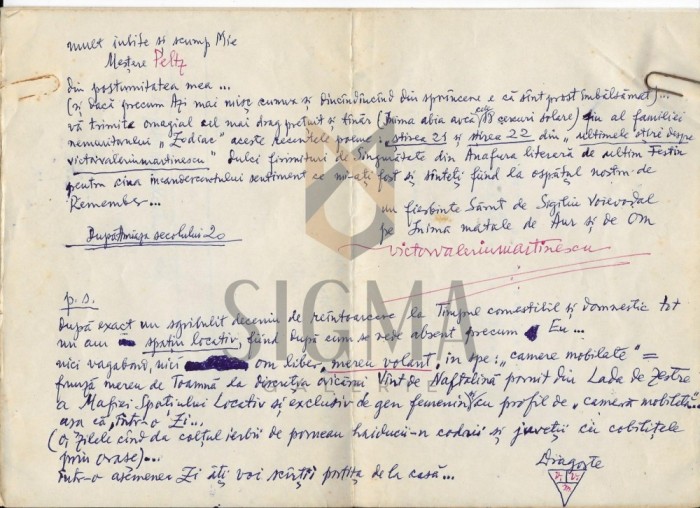 mult iubite si scump Mie
Meștere Peltz
din postumitatea mea...
(și dacă precum Azi mai mișc cumva și dincîndîncînd din sprîncene e că sînt prost îmbălsămat)...
vă trimite omagial cel mai drag prețuit și tînăr (Inima abia avea cele ceruri solare) fiu al familiei
nemuritorului „Zodiac” aceste recentele poeme: „știrea 21 și știrea 22 din „ultimele știri despre
victorvaleriumartinescu” dulci firimituri de Singurătate din Anafura literară de ultim Festin
pentru cina incandescentului sentiment ce mi-ați fost și sînteți fiind la ospățul nostru de
Remember...
un fierbinte Sărut de Sigiliu Voievodal
pe Inima matale de Aur și de Om
Dupăamiaza secolului 20
victorvaleriumartinescu
SIGMA
p.s.
după exact un sgribulit deceniu de reîntoarcere la Timpul comestibil și domnestic tot
nu am spațiu locativ, fiind după cum se vede absent precum Eu...
nici vagabond, nici om liber, mereu volant, in pe: „camere mobilate” =
frunză mereu de Toamnă la discreția oricărui Vînt de Naftalină pornit din Lada de Zestre
a Mafiei Spațiului Locativ și exclusiv de gen feminin cu profil de „cameră mobilată”
așa că, într-o Zi...
(O, zilele cînd da colțul ierbii de porneau haiducii-n codrii și juveții cu cobilițele
prin orașe)...
într-o asemenea Zi îți voi scîrțîi portița de la casă...
Dragoste
V V
m